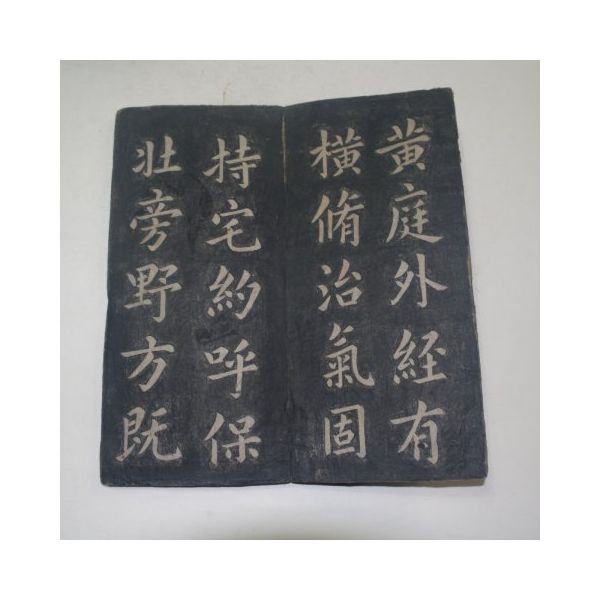 黄庭外経有
横脩治氣固
持宅約呼保
壮旁野方既